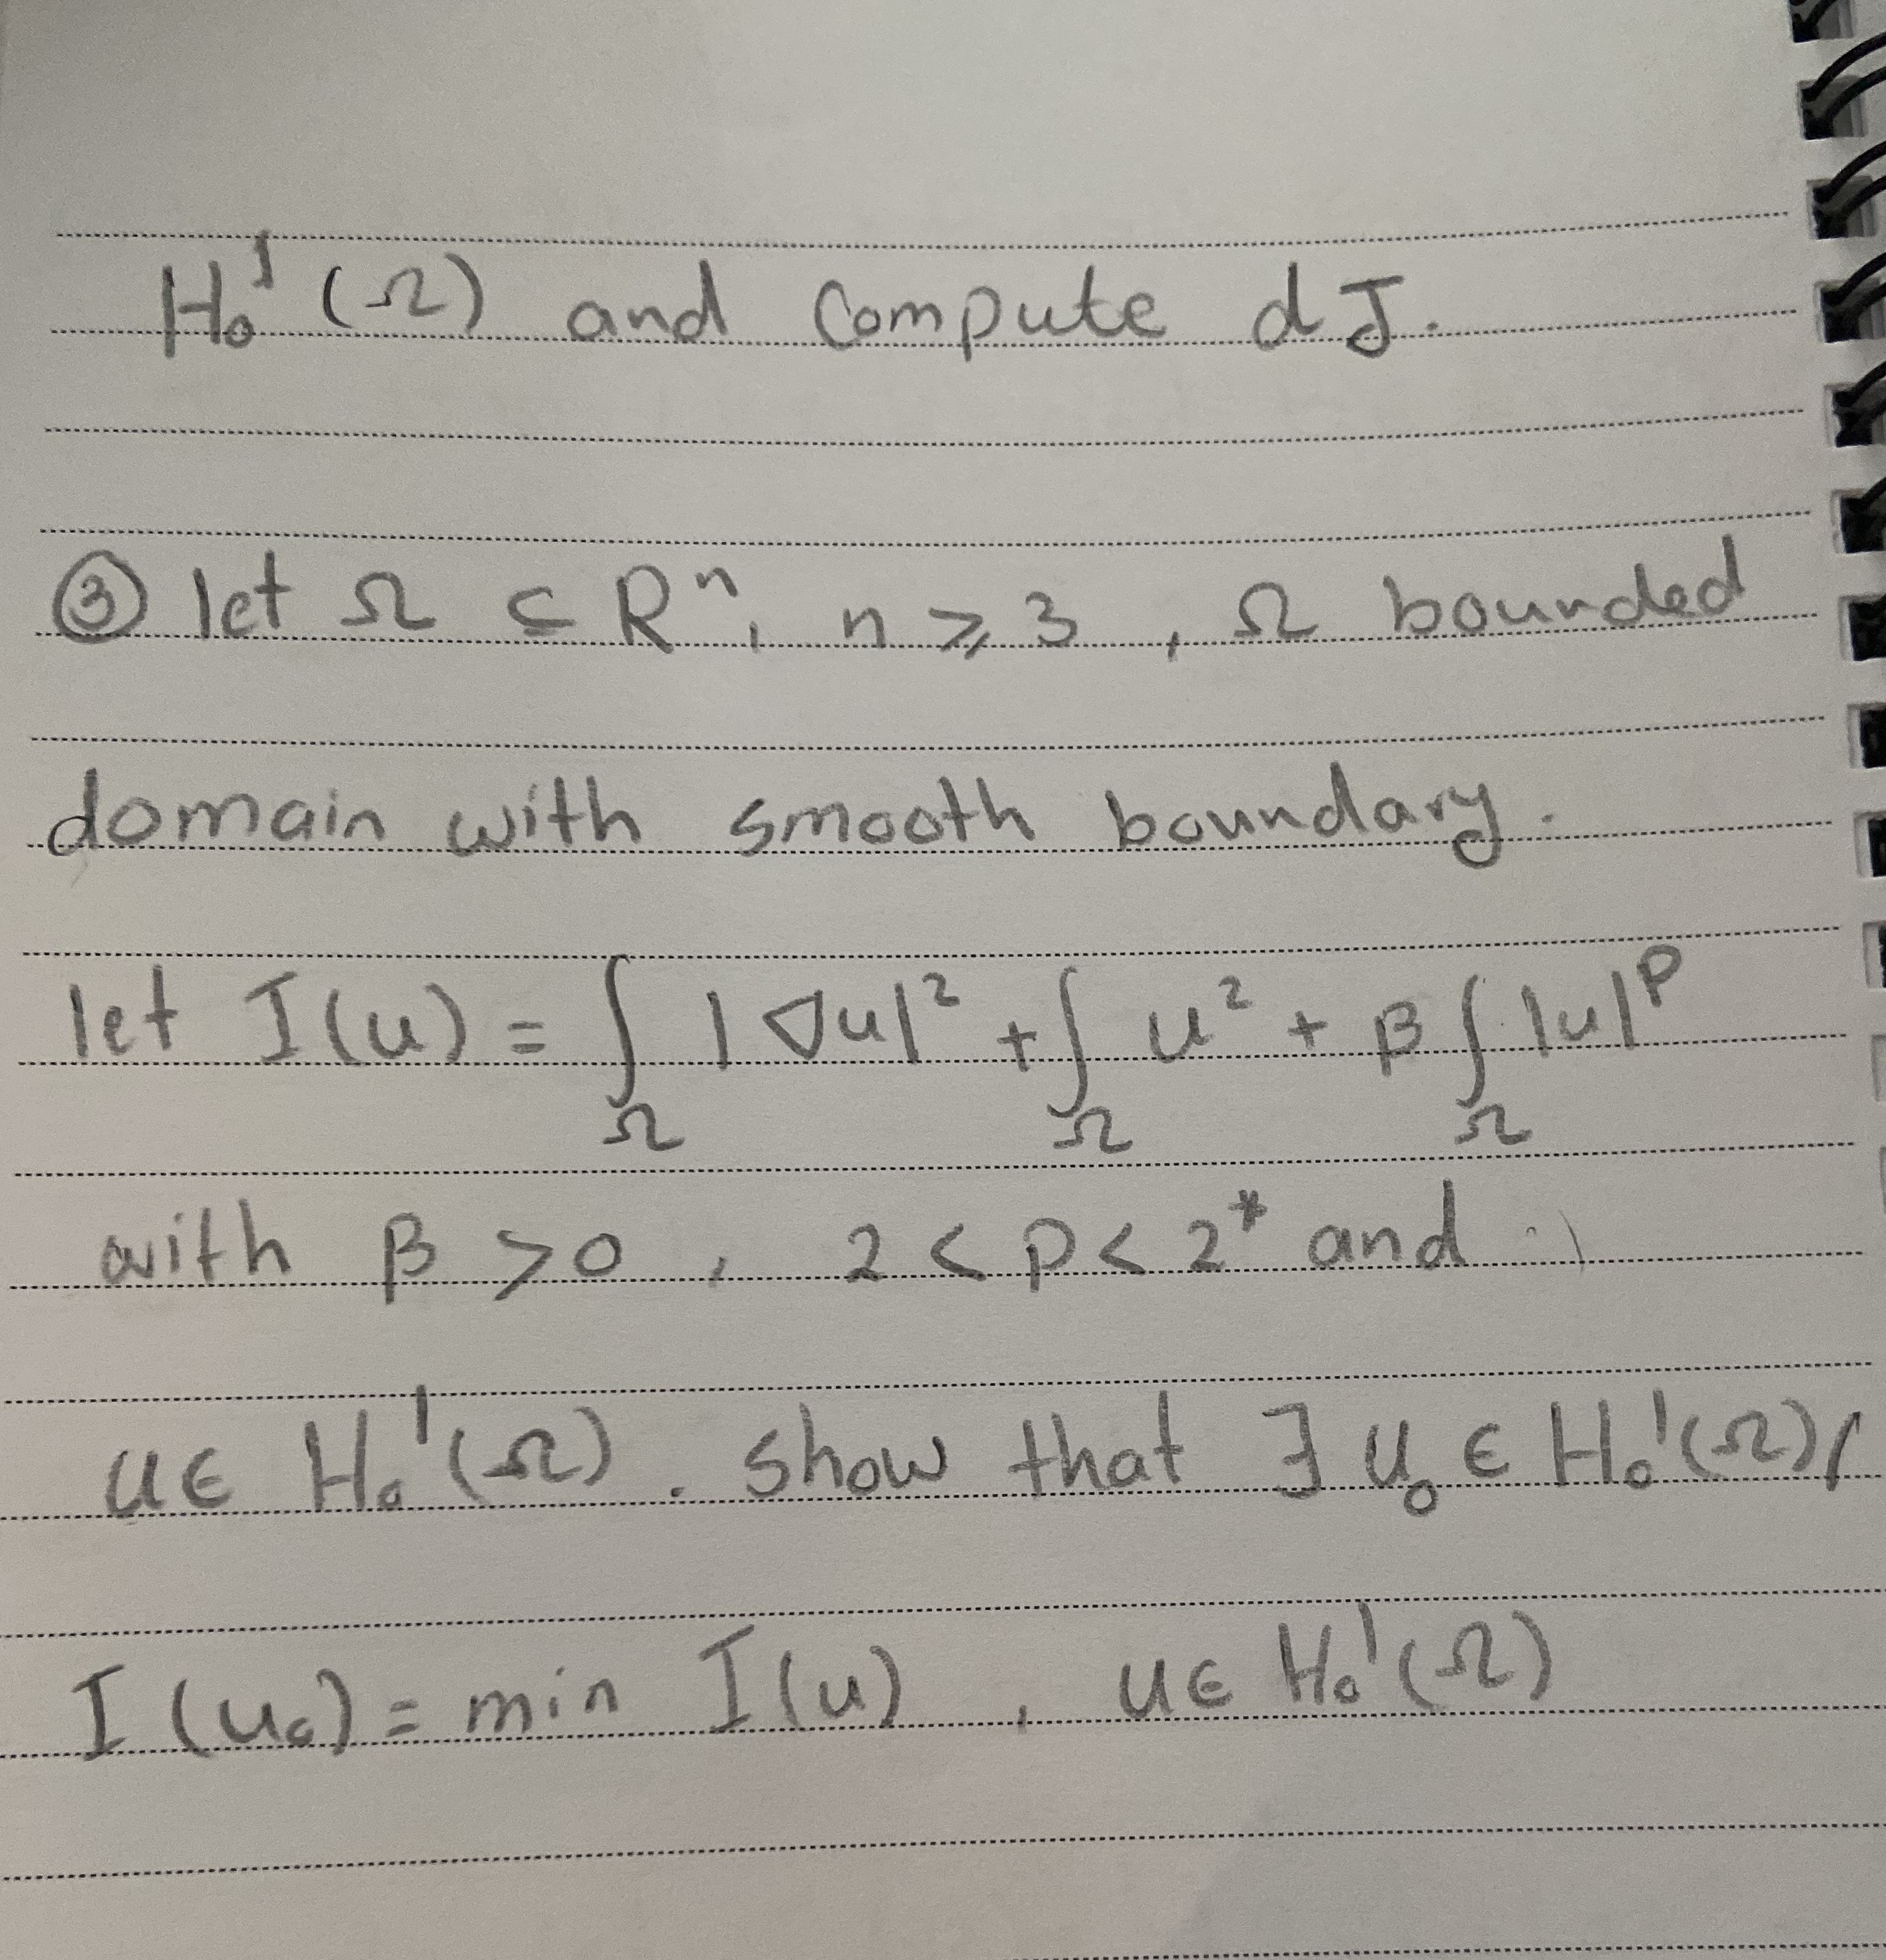 H₀¹(Ω) and compute dJ.
③ let Ω ⊂ Rⁿ, n ⩾ 3, Ω bounded
domain with smooth boundary.
let I(u) = ∫_Ω |∇u|² + ∫_Ω u² + β ∫_Ω |u|^p
with β > 0, 2 < p < 2* and
u ∈ H₀¹(Ω). show that ∃ u₀ ∈ H₀¹(Ω)/
I(u₀) = min I(u), u ∈ H₀¹(Ω)